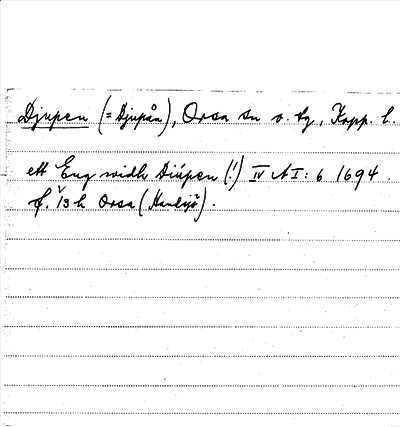 Djupen (= Djupån), Orsa sn o. tg, Kopp. l.
ett Eng widh Diúpen (!) IV A I: 6 1694.
f. 1/3 h Orsa (Hansjö).